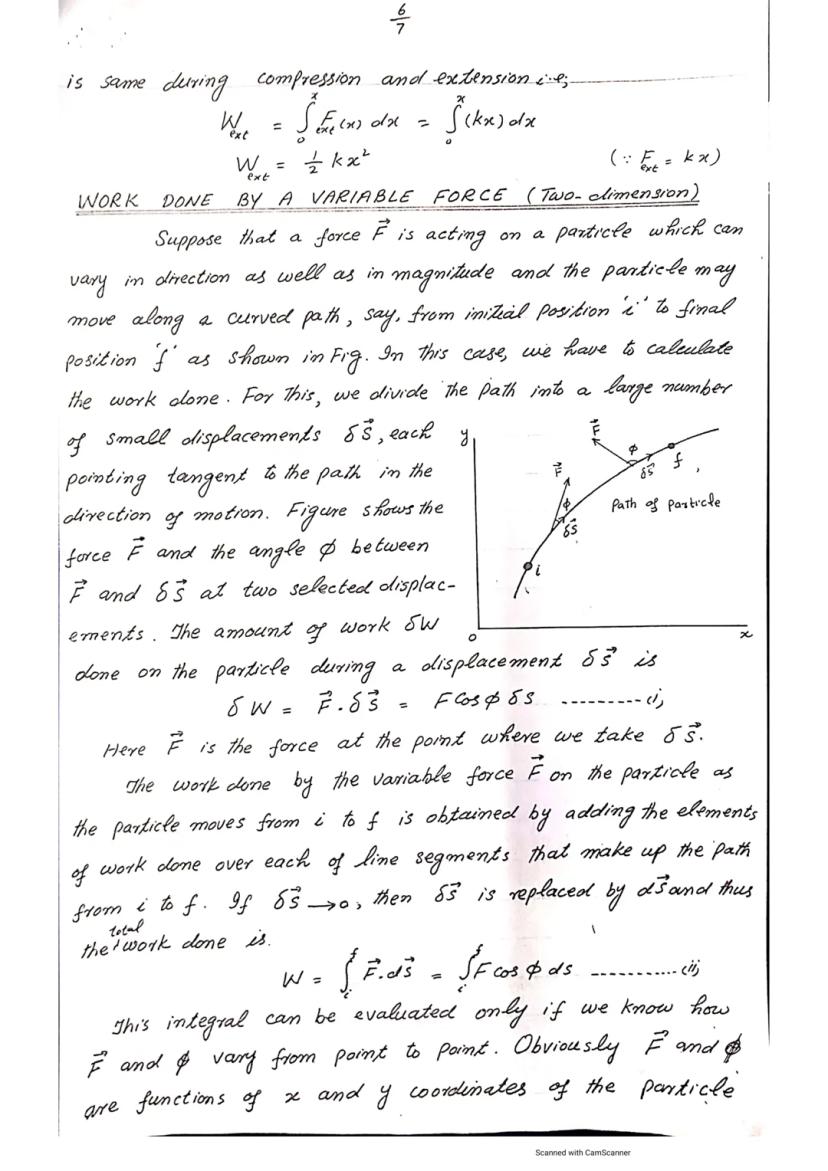 6/7
is same during compression and extension i.e;
W_ext = ∫₀ˣ F_ext(x) dx = ∫₀ˣ (kx) dx
W_ext = ½ kx² (∵ F_ext = kx)
WORK DONE BY A VARIABLE FORCE (Two-dimension)
Suppose that a force F⃗ is acting on a particle which can
vary in direction as well as in magnitude and the particle may
move along a curved path, say, from initial position 'i' to final
position 'f' as shown in Fig. In this case, we have to calculate
the work done. For this, we divide the path into a large number
of small displacements δS⃗, each
pointing tangent to the path in the
direction of motion. Figure shows the
force F⃗ and the angle φ between
F⃗ and δS⃗ at two selected displac-
ements. The amount of work δW
y
F⃗
φ
δS⃗
f
F⃗
φ
Path of particle
δS⃗
i
o
x
done on the particle during a displacement δS⃗ is
δW = F⃗.δS⃗ = F Cos φ δS ---------- (i)
Here F⃗ is the force at the point where we take δS⃗.
The work done by the variable force F⃗ on the particle as
the particle moves from i to f is obtained by adding the elements
of work done over each of line segments that make up the path
from i to f. If δS⃗ →0, then δS⃗ is replaced by dS⃗ and thus
the total work done is.
W = ∫ᵢᶠ F⃗.dS⃗ = ∫ᵢᶠ F cos φ ds ----------- (ii)
This integral can be evaluated only if we know how
F⃗ and φ vary from point to point. Obviously F⃗ and φ
are functions of x and y coordinates of the particle
Scanned with CamScanner